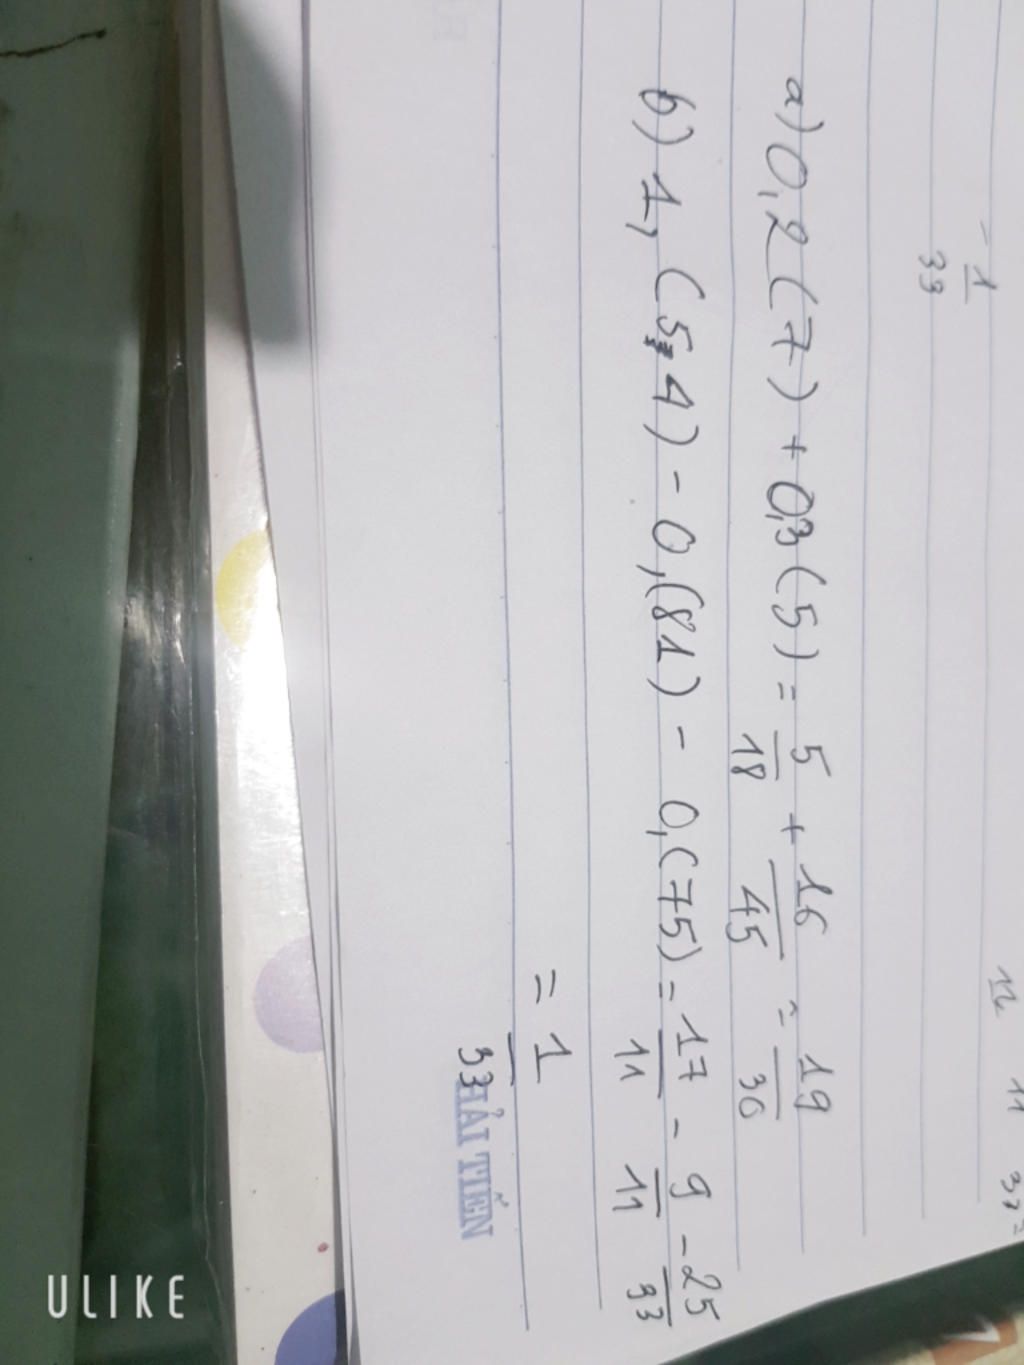 - 1/33
12 11 33 =
a) 0,2(7) + 0,3(5) = 5/18 + 16/45 = 19/30
b) 1,(54) - 0,(81) - 0,(75) = 17/11 - 9/11 - 25/33
= 1/33
HẢI TIẾN
ULIKE